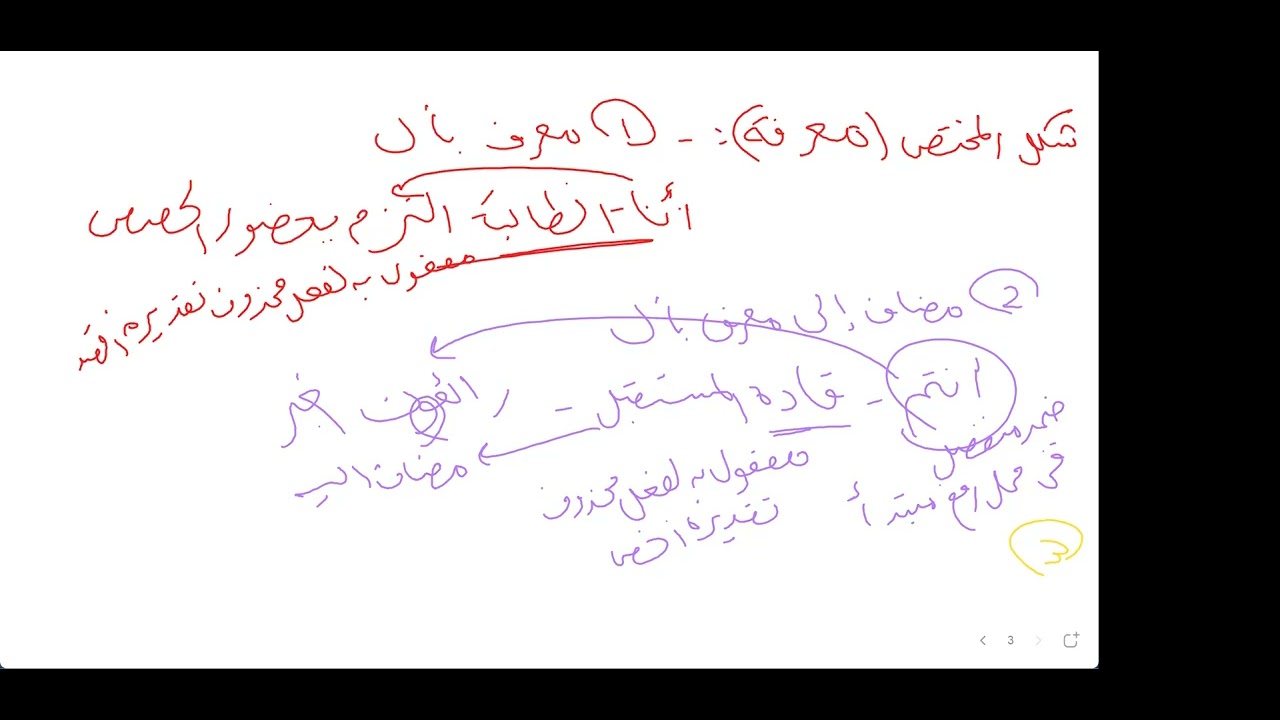 شكل المختص (معرفة): - ① معرف بأل
أنا - الطالبة التزم بحضور الحصص
مفعول به لفعل محذوف تقديره أخص
② مضاف إلى معرف بأل
أنتم - قادة المستقبل -
مضاف إليه
مفعول به لفعل محذوف
تقديره أخص
ضمير منفصل
في محل رفع مبتدأ
3
3